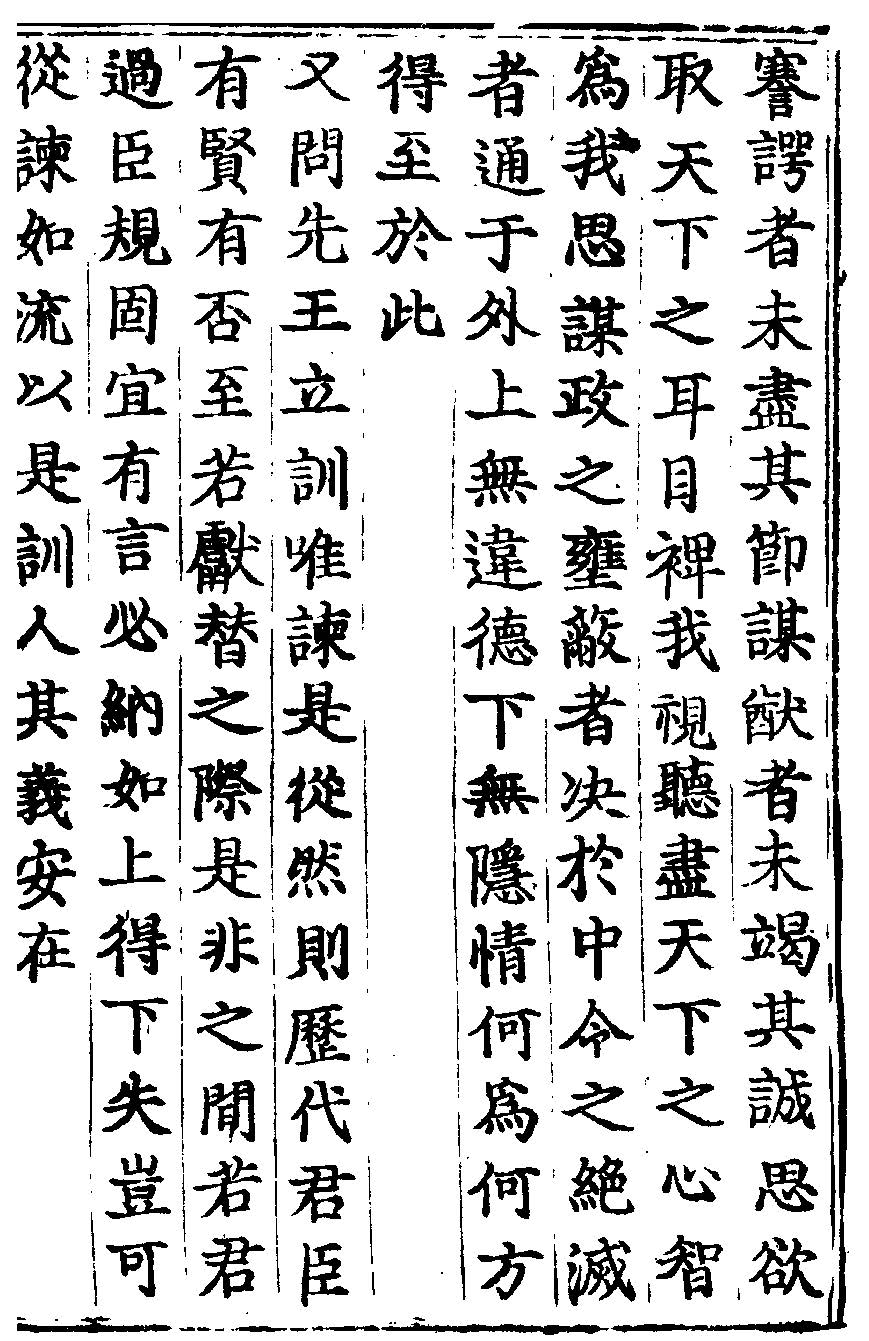 謇諤者未盡其節謀猷者未竭其誠思欲
取天下之耳目裨我視聽盡天下之心智
爲我思謀政之壅蔽者决於中令之絶滅
者通于外上無違德下無隱情何爲何方
得至於此
又問先王立訓唯諫是從然則歷代君臣
有賢有否至若獻替之際是非之間若君
過臣規固宜有言必納如上得下失豈可
從諫如流以是訓人其義安在